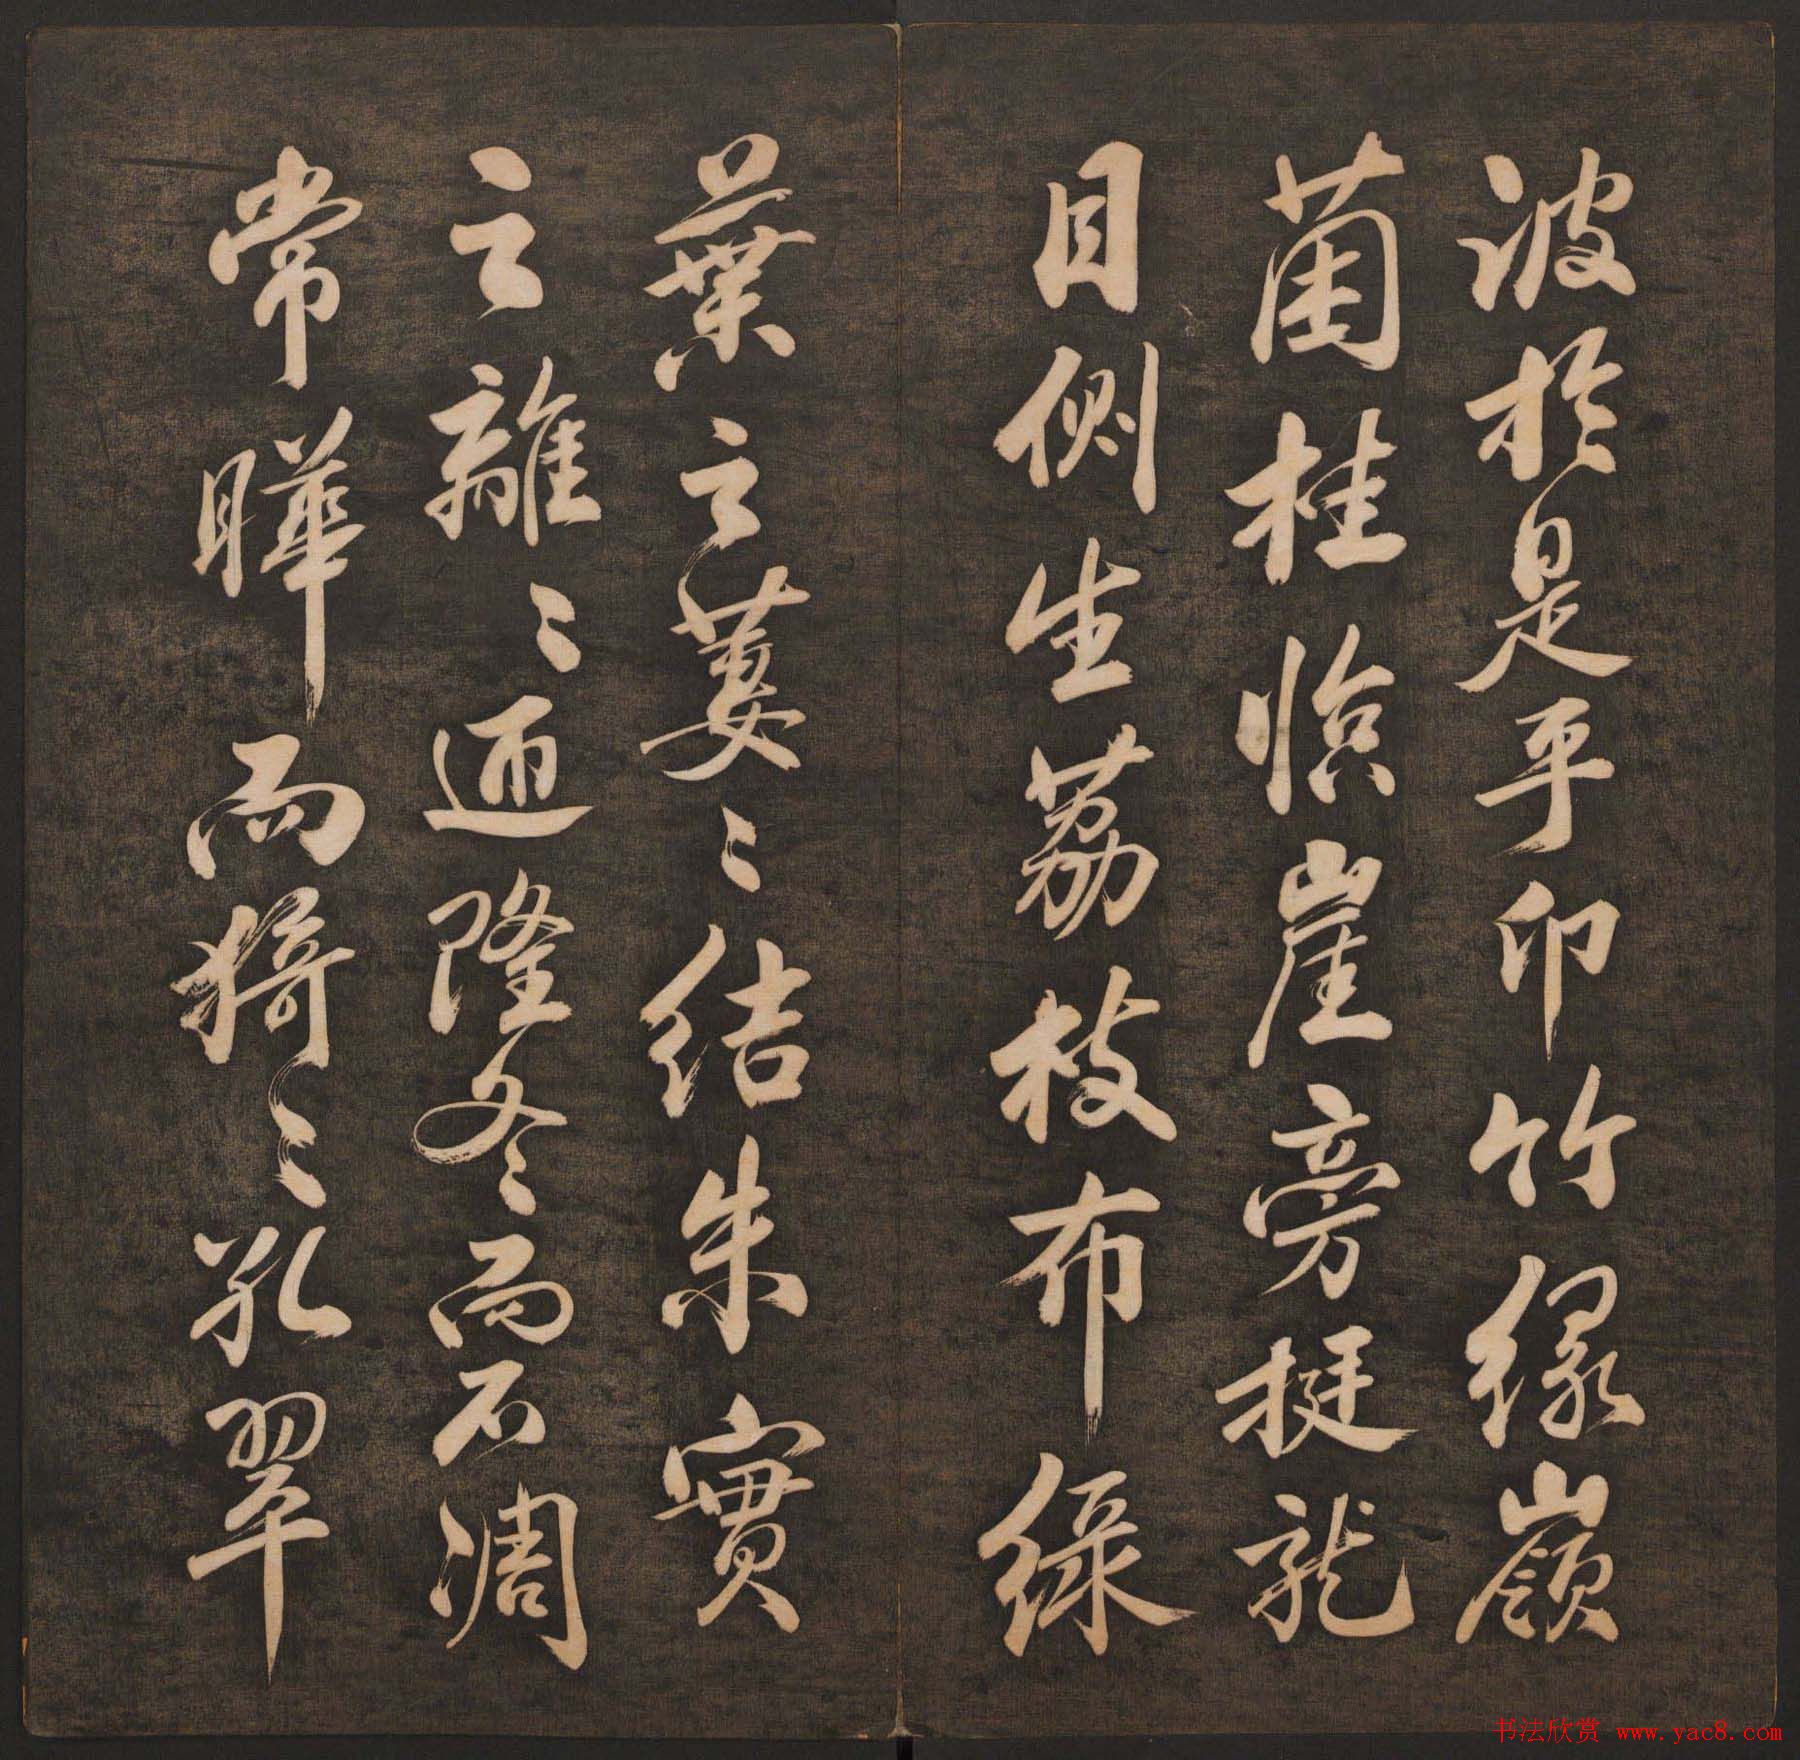 波於是乎卭竹緣嶺
菌桂臨崖旁挺龍
目側生荔枝布綠
葉之萋〻結朱實
之離〻迎隆冬而不凋
常曄而猗〻孔翠
书法欣赏 www.yac8.com